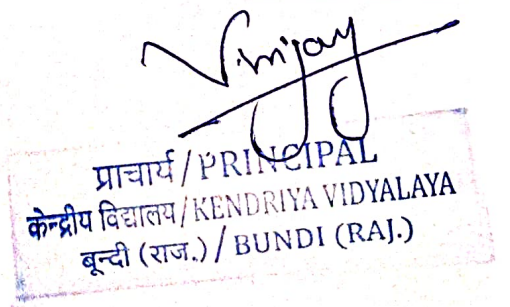 Vinjay
प्राचार्य/PRINCIPAL
केन्द्रीय विद्यालय/KENDRIYA VIDYALAYA
बून्दी (राज.)/BUNDI (RAJ.)